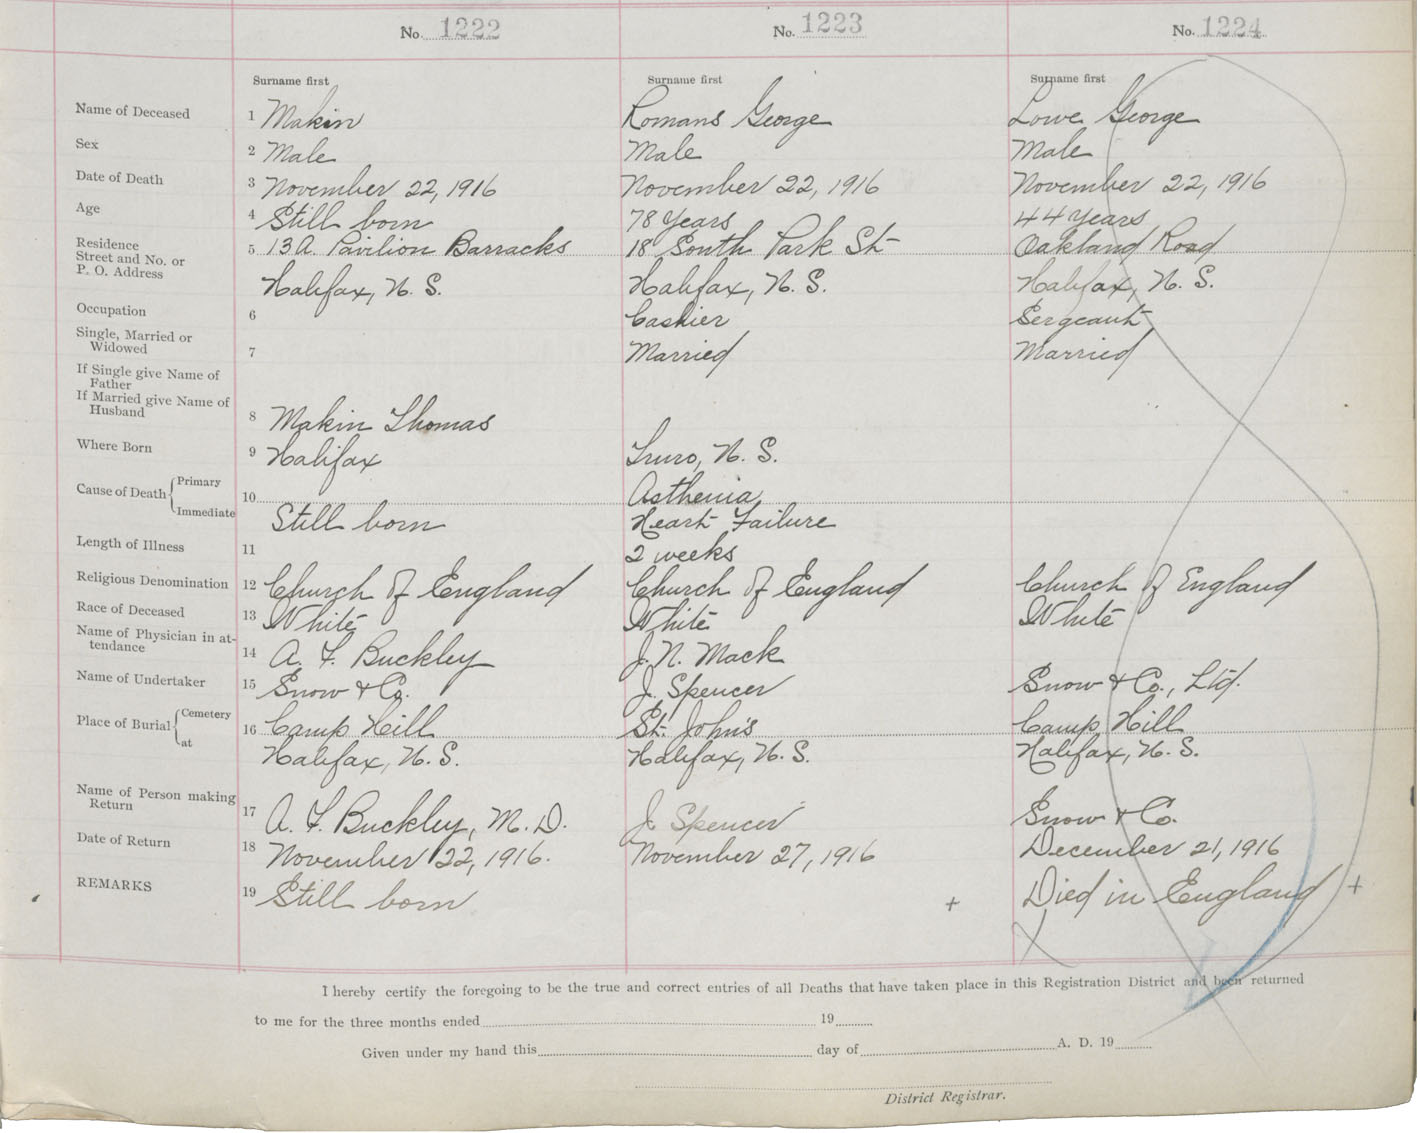 No. 1222 No. 1223 No. 1224
Surname first Surname first Surname first
Name of Deceased 1 Makin Romans George Lowe George
Sex 2 Male Male Male
Date of Death 3 November 22, 1916 November 22, 1916 November 22, 1916
Age 4 Still born 78 Years 44 Years
Residence
Street and No. or 5 13A. Pavilion Barracks 18 South Park St Oakland Road
P. O. Address
Halifax, N. S. Halifax, N. S. Halifax, N. S.
Occupation 6 Cashier Sergeant
Single, Married or
Widowed 7 Married Married
If Single give Name of
Father
If Married give Name of
Husband 8 Makin Thomas
Where Born 9 Halifax Truro, N. S.
Cause of Death Primary 10 Asthenia
Immediate Still born Heart Failure
Length of Illness 11 2 weeks
Religious Denomination 12 Church of England Church of England Church of England
Race of Deceased 13 White White White
Name of Physician in at-
tendance 14 A. F. Buckley J. N. Mack
Name of Undertaker 15 Snow & Co. J. Spencer Snow & Co., Ltd.
Place of Burial Cemetery 16 Camp Hill St. John's Camp Hill
at Halifax, N. S. Halifax, N. S. Halifax, N. S.
Name of Person making
Return 17 A. F. Buckley, M. D. J. Spencer Snow & Co.
Date of Return 18 November 22, 1916. November 27, 1916 December 21, 1916
REMARKS 19 Still born + Died in England +
I hereby certify the foregoing to be the true and correct entries of all Deaths that have taken place in this Registration District and been returned
to me for the three months ended 19
Given under my hand this day of A. D. 19
District Registrar.